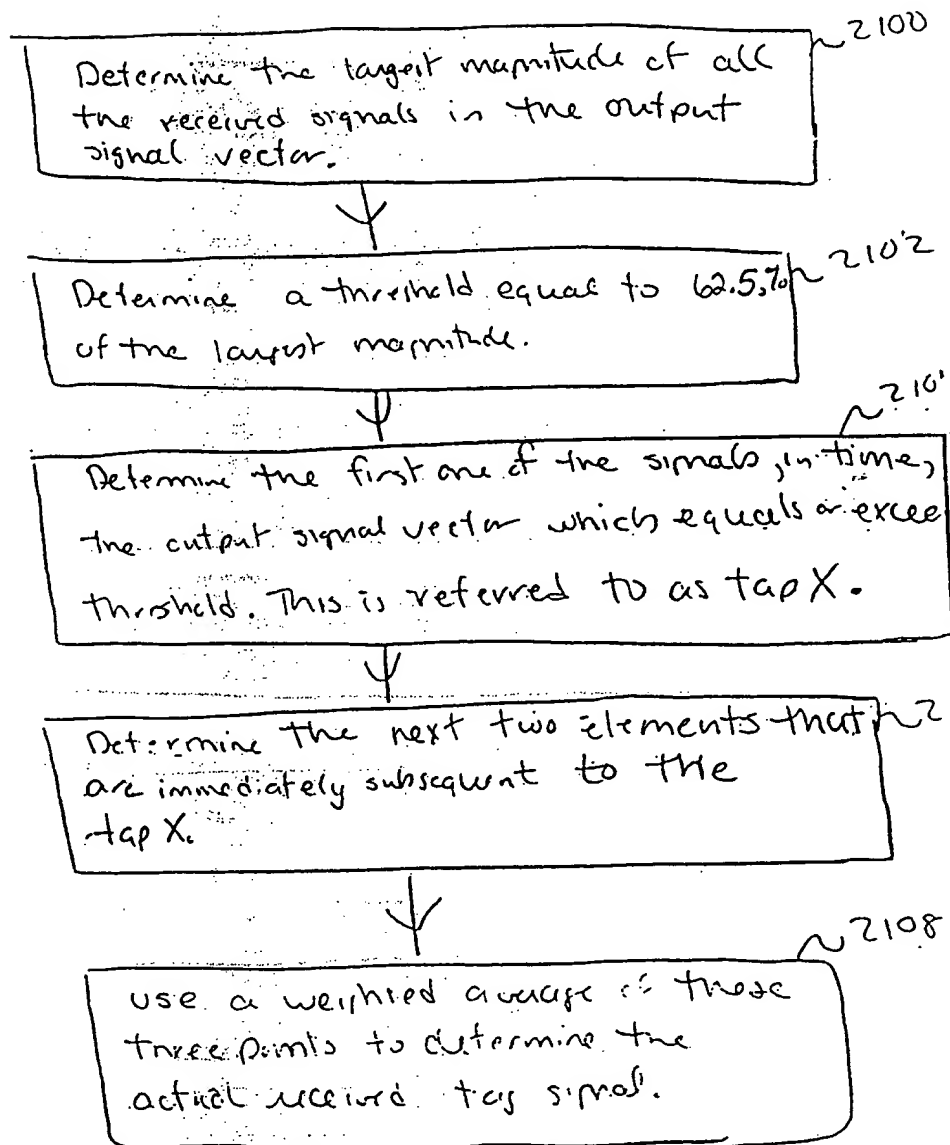 2100
Determine the largest magnitude of all
the received signals in the output
signal vector.
2102
Determine a threshold equal to 62.5%
of the largest magnitude.
210
Determine the first one of the signals, in time,
the output signal vector which equals or excee
threshold. This is referred to as tap X.
2
Determine the next two elements that
are immediately subsequent to the
tap X.
2108
use a weighted average of these
three points to determine the
actual received tag signal.